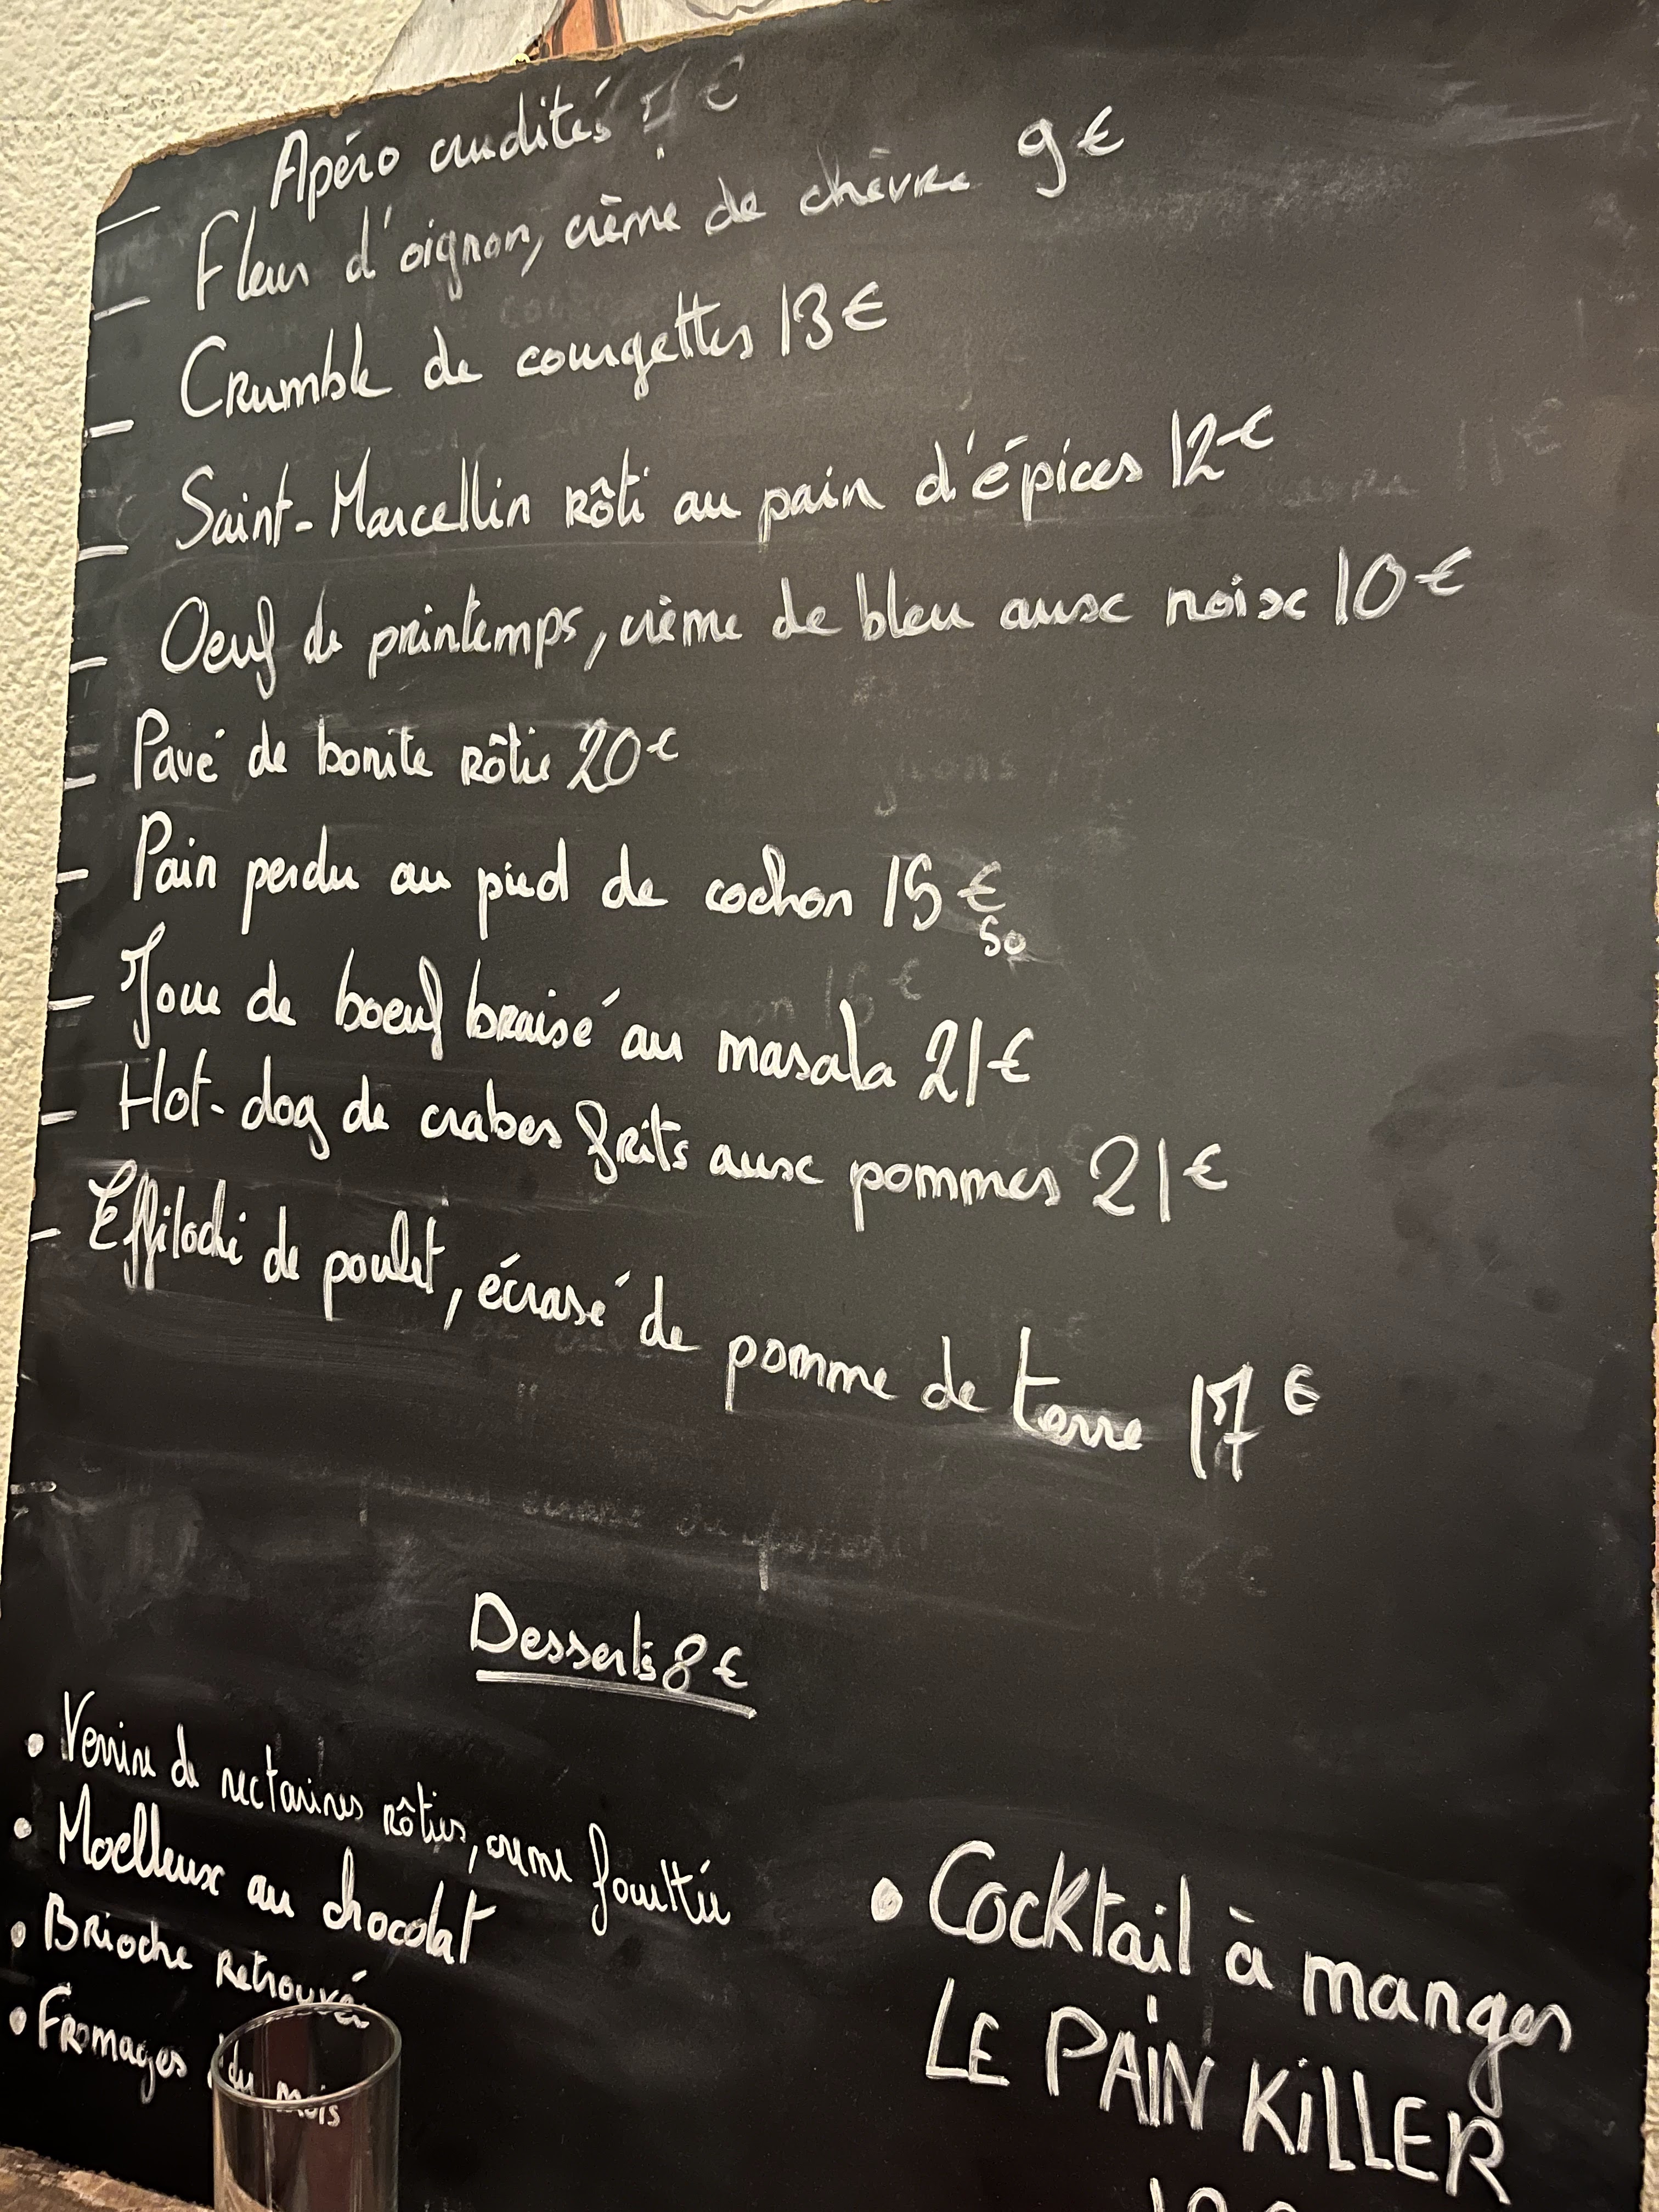 - Apéro crudités 7€
- Fleur d'oignon, crème de chèvre 9€
- Crumble de courgettes 13€
- Saint-Marcellin rôti au pain d'épices 12€
- Oeuf de printemps, crème de bleu aux noix 10€
- Pavé de bonite rôtie 20€
- Pain perdu au pied de cochon 15€50
- Joue de boeuf braisé au masala 21€
- Hot-dog de crabes frits aux pommes 21€
- Effiloché de poulet, écrasé de pomme de terre 17€
Desserts 8€
• Verrine de nectarines rôties, crème fouettée
• Moelleux au chocolat
• Brioche retrouvée
• Fromages du mois
• Cocktail à manger
LE PAIN KILLER